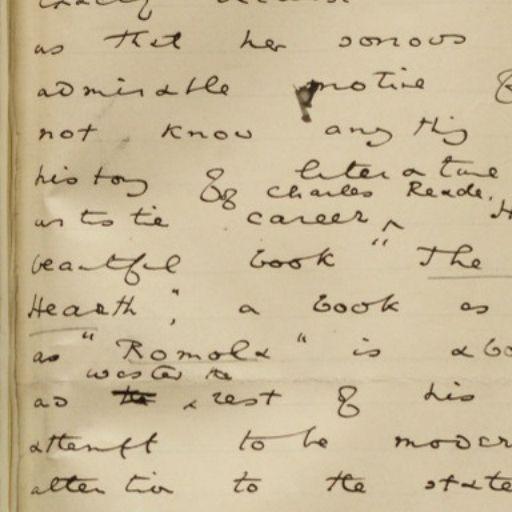 as that her sorrows
admirable motive
not know any thing
history of literature
of Charles Reade.
artistic career ^ H
beautiful book "The
Hearth", a book as
as "Romola" is abo
wasted the
as the rest of his
attempt to be modern
attention to the state